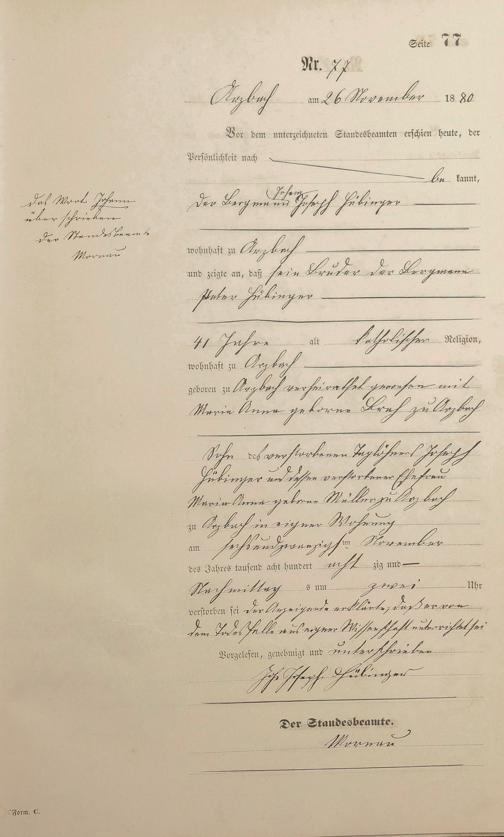 Seite 77
Nr. 77
Arzbach am 26 November 1880
Vor dem unterzeichneten Standesbeamten erschien heute, der
Persönlichkeit nach
be kannt,
Johann
der Bergmann Joseph Hübinger
das Wort Johann
überschrieben
der Standesbeamte
Mornau
wohnhaft zu Arzbach
und zeigte an, daß sein Bruder der Bergmann
Peter Hübinger
41 Jahre alt katholischer Religion,
wohnhaft zu Arzbach
geboren zu Arzbach verheirathet gewesen mit
Maria Anna geborne zu Arzbach
Sohn des verstorbenen Taglöhners Joseph
Hübinger und dessen verstorbener Ehefrau
Maria Anna geborne Müller zu Arzbach
zu Arzbach in eigner Wohnung
am sechsundzwanzigsten November
des Jahres tausend acht hundert acht zig und
Nachmittags um zwei Uhr
verstorben sei der Anzeigende erklärte, daß er von
dem Todesfalle aus eigner Wissenschaft unterrichtet sei
Vorgelesen, genehmigt und unterschrieben
Joh Joseph Hübinger
Der Standesbeamte.
Mornau
Form. C.